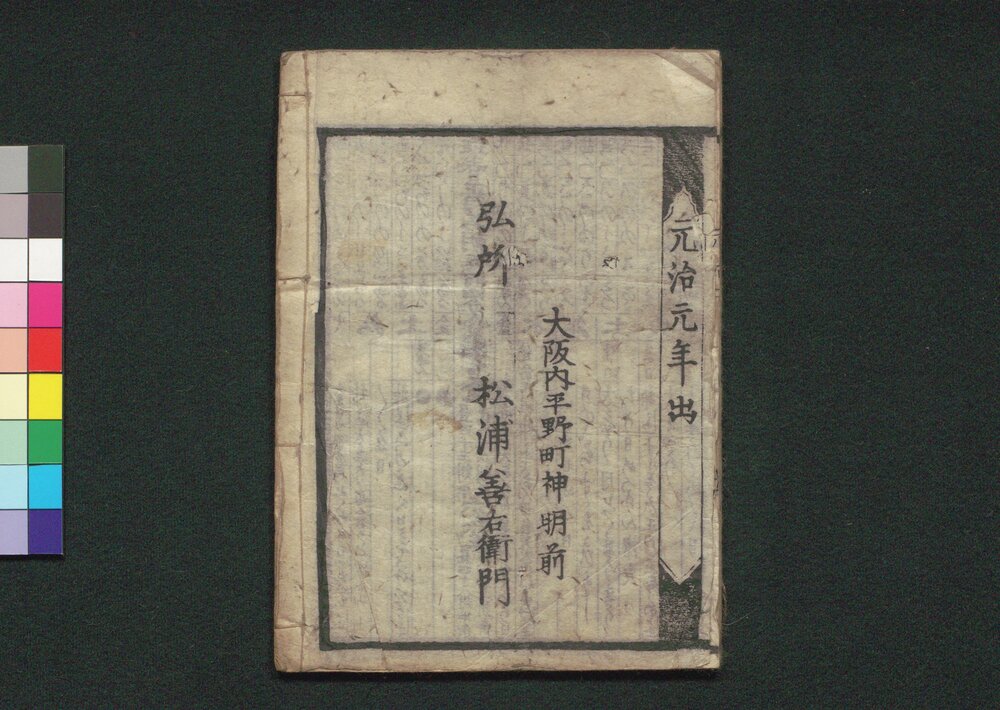 元治元年出
大阪内平野町神明前
弘所 松浦善右衛門